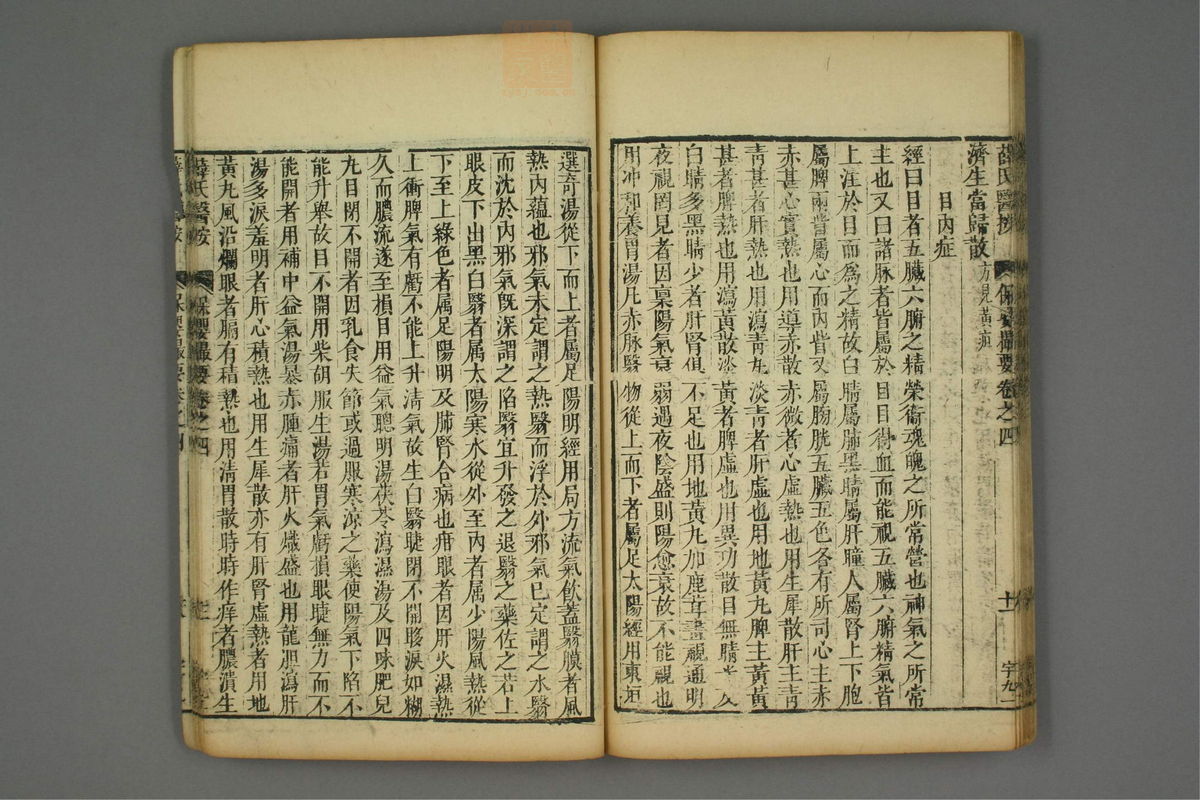 薛氏醫按 保嬰撮要卷之四 十一 字九
濟生當歸散方見黃疸
目內症
經曰目者五臟六腑之精榮衞魂魄之所常營也神氣之所常
主也又曰諸脉者皆屬於目目得血而能視五臟六腑精氣皆
上注於目而爲之精故白睛屬肺黑睛屬肝瞳人屬腎上下胞
屬脾兩眥屬心而內眥又屬膀胱五臟五色各有所司心主赤
赤甚心實熱也用導赤散赤微者心虛熱也用生犀散肝主靑
靑甚者肝熱也用瀉靑丸淡靑者肝虛也用地黃丸脾主黃黃
甚者脾熱也用瀉黃散淡黃者脾虛也用異功散目無睛光及
白睛多黑睛少者肝腎俱不足也用地黃丸加鹿茸晝視通明
夜視罔見者因稟陽氣衰弱遇夜陰盛則陽愈衰故不能視也
用冲和養胃湯凡赤脉翳物從上而下者屬足太陽經用東垣
選奇湯從下而上者屬足陽明經用局方流氣飮蓋翳膜者風
熱內蘊也邪氣未定謂之熱翳而浮於外邪氣已定謂之水翳
而沈於內邪氣旣深謂之陷翳宜升發之退翳之藥佐之若上
眼皮下出黑白翳者属太陽寒水從外至內者属少陽風熱從
下至上綠色者属足陽明及肺腎合病也疳眼者因肝火濕熱
上衝脾氣有虧不能上升淸氣故生白翳睫閉不開眵淚如糊
久而膿流遂至損目用益氣聰明湯茯苓瀉濕湯及四味肥兒
九目閉不開者因乳食失節或過服寒凉之藥使陽氣下陷不
能升舉故目不開用柴胡服生湯若胃氣虧損眼睫無力而不
能開者用補中益氣湯暴赤腫痛者肝火熾盛也用龍胆瀉肝
湯多淚羞明者肝心積熱也用生犀散亦有肝腎虛熱者用地
黃九風沿爛眼者膈有積熱也用淸胃散時時作痒者膿潰生
薛氏醫按 保嬰撮要卷之四